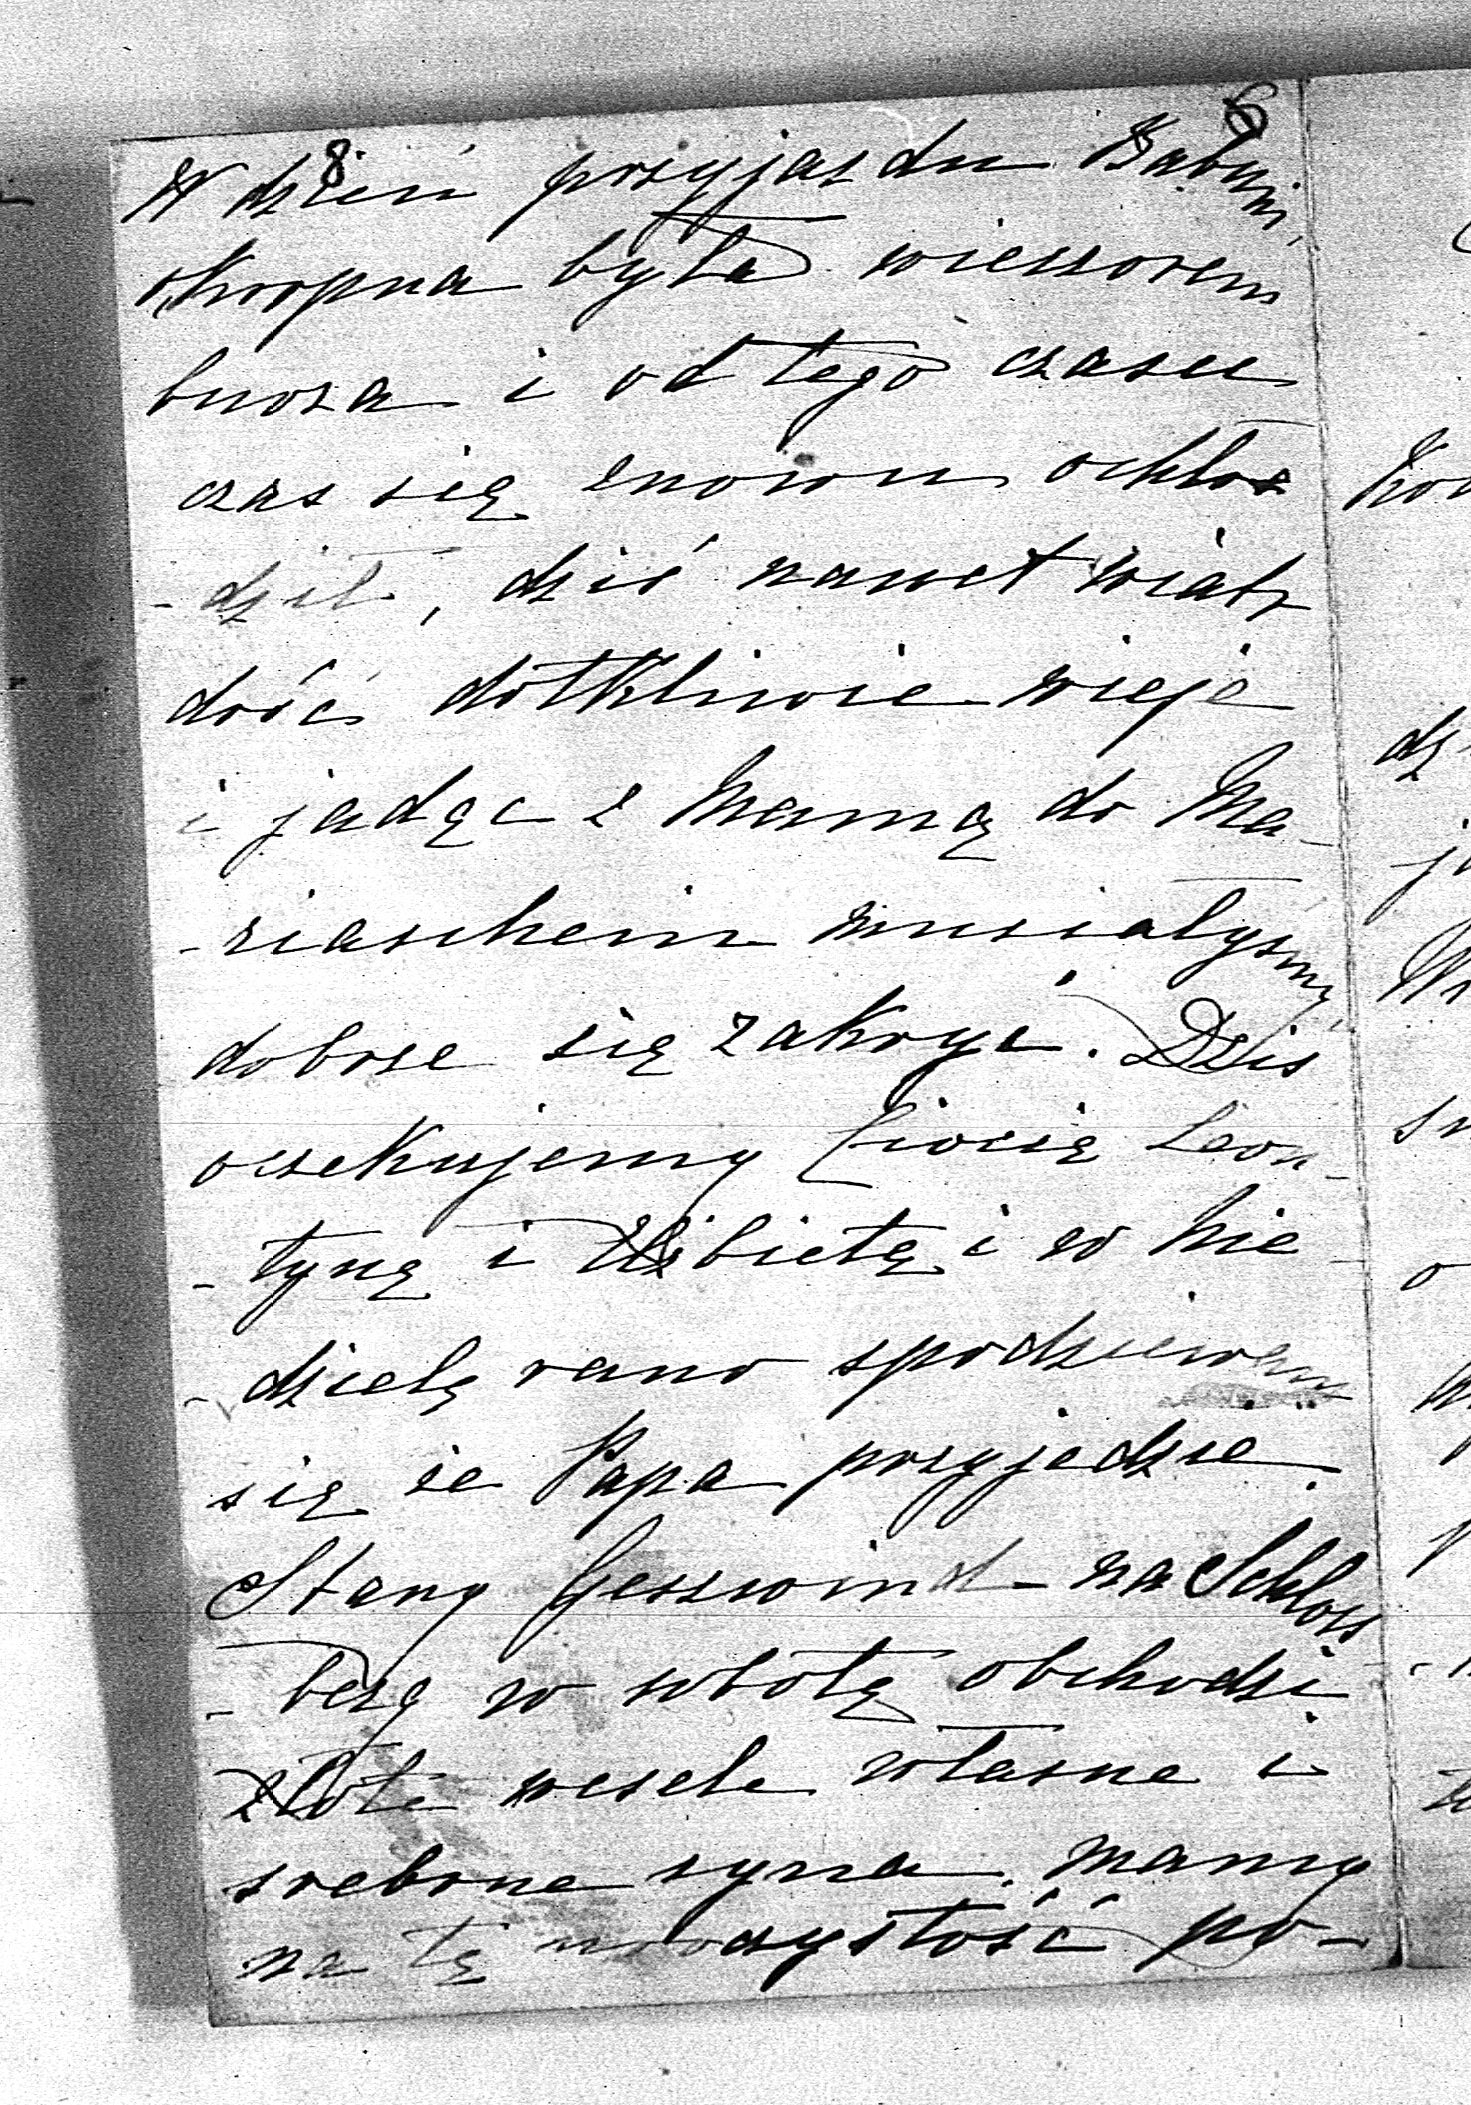 8
6
W dzień przyjazdu Babuni,
okropna była wieczorem
burza i od tego czasu
czas się znowu ochło-
-dził, dziś nawet wiatr
dość dotkliwie wieje
i jadąc z Mamą do Ma-
-riaschein musiałyśmy
dobrze się zakryć. Dziś
oczekujemy Ciocię Leon-
-tynę i Elżbietę i w Nie
-dzielę rano spodziewamy
się że Papa przyjedzie.
Stary Gesswind na Schloss
-berg w sobotę obchodzi
złote wesele własne i
srebrne syna. mamy
na tę uroczystość po-